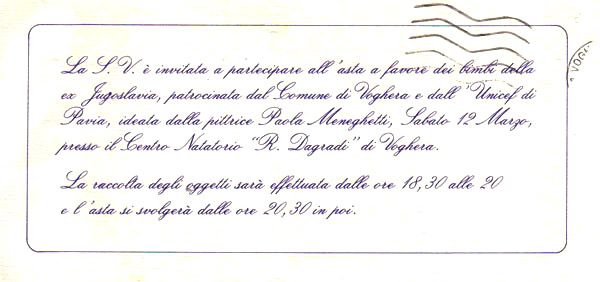 La S. V. è invitata a partecipare all'asta a favore dei bimbi della
ex Jugoslavia, patrocinata dal Comune di Voghera e dall'Unicef di
Pavia, ideata dalla pittrice Paola Meneghetti, Sabato 12 Marzo,
presso il Centro Natatorio "R. Dagradi" di Voghera.
La raccolta degli oggetti sarà effettuata dalle ore 18,30 alle 20
e l'asta si svolgerà dalle ore 20,30 in poi.